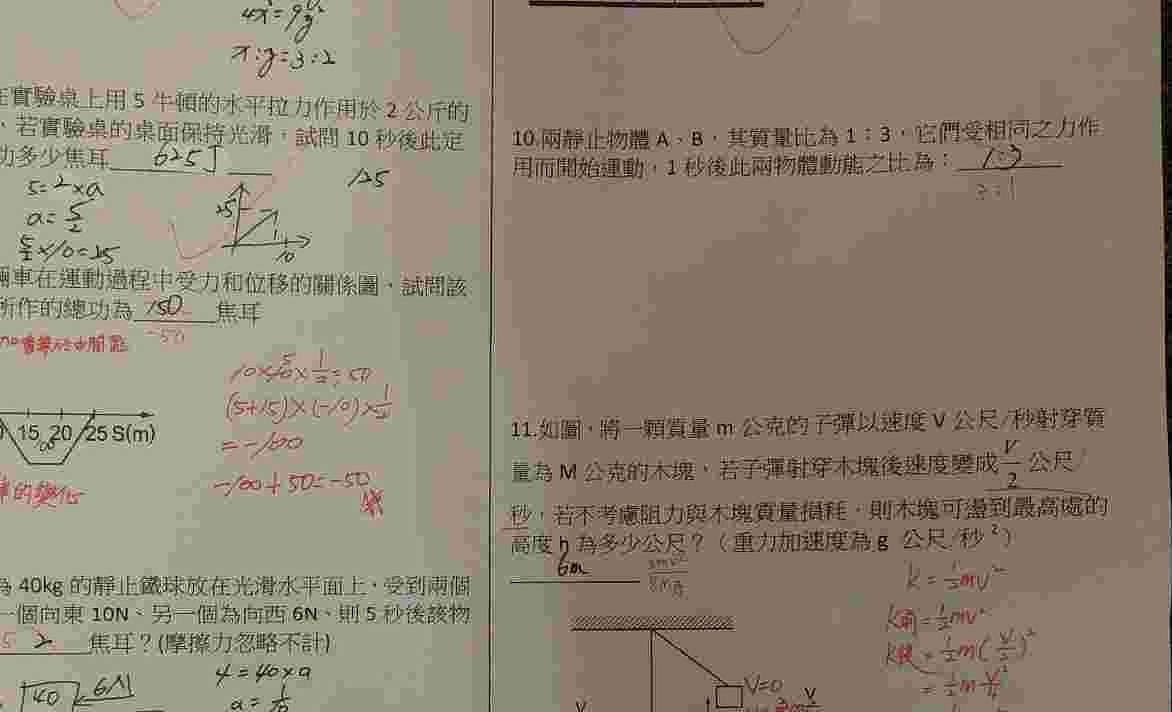 4x²=9y²
x:y=3:2
在實驗桌上用 5 牛頓的水平拉力作用於 2 公斤的
、若實驗桌的桌面保持光滑，試問 10 秒後此定
功多少焦耳 625J
125
5=2×a
a=5/2
5/2×10=25
25
10
輛車在運動過程中受力和位移的關係圖、試問該
所作的總功為 150 焦耳
-50
10×10×1/2=50
5
(5+15)×(-10)×1/2
=-100
-100+50=-50
15 20 25 S(m)
的變化
為 40kg 的靜止鐵球放在光滑水平面上，受到兩個
一個向東 10N、另一個為向西 6N、則 5 秒後該物
5 2 焦耳？(摩擦力忽略不計)
4=40×a
a=1/10
40 6N
10.兩靜止物體 A、B，其質量比為 1：3，它們受相同之力作
用而開始運動，1 秒後此兩物體動能之比為： 1:3
3:1
11.如圖，將一顆質量 m 公克的子彈以速度 V 公尺/秒射穿質
量為 M 公克的木塊，若子彈射穿木塊後速度變成 V/2 公尺/
秒，若不考慮阻力與木塊質量損耗，則木塊可盪到最高處的
高度 h 為多少公尺？（重力加速度為 g 公尺/秒²）
6m
k=1/2mv²
k前=1/2mv²
k後=1/2m(V/2)²
=1/2m V²/4
V=0
V